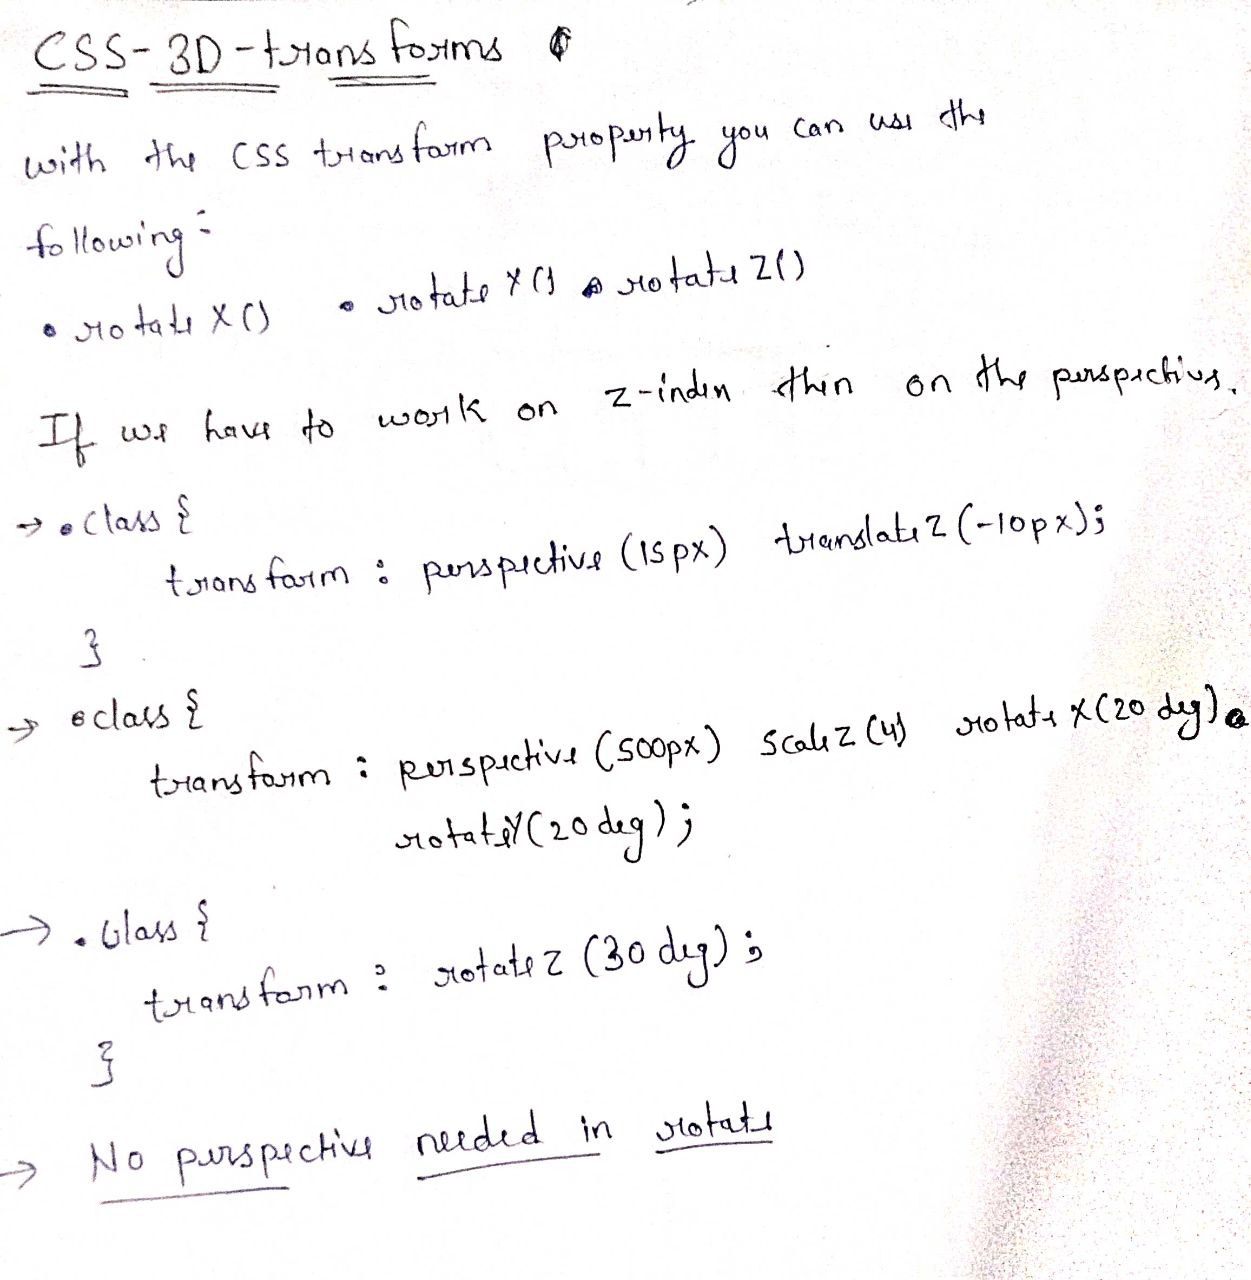 CSS-3D-transforms
with the CSS transform property you can use the
following:
• rotateX() • rotateY() • rotateZ()
If we have to work on z-index then on the perspective.
→ .class {
transform : perspective (15px) translateZ (-10px);
}
→ .class {
transform : perspective (500px) scaleZ (4) rotateX (20 deg)
rotateY (20 deg) ;
→ .class {
transform : rotateZ (30 deg) ;
}
→ No perspective needed in rotate